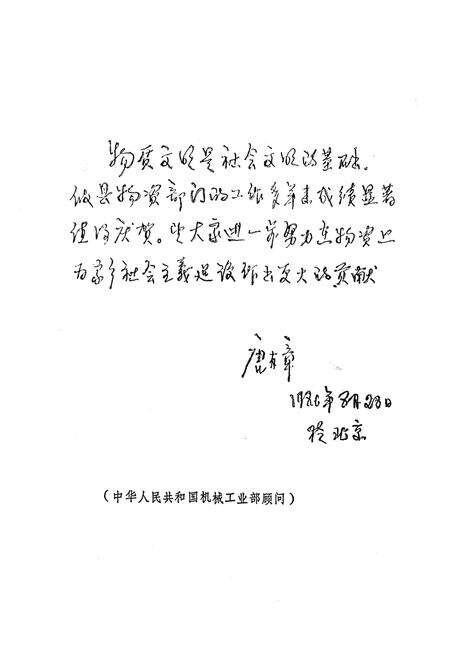 物质文明是社会文明的基础。
攸县物资部门的工作多年来成绩显著
值得庆贺。望大家进一步努力在物资上
为家乡社会主义建设作出更大的贡献
唐有章
1986年8月28日
于北京
（中华人民共和国机械工业部顾问）